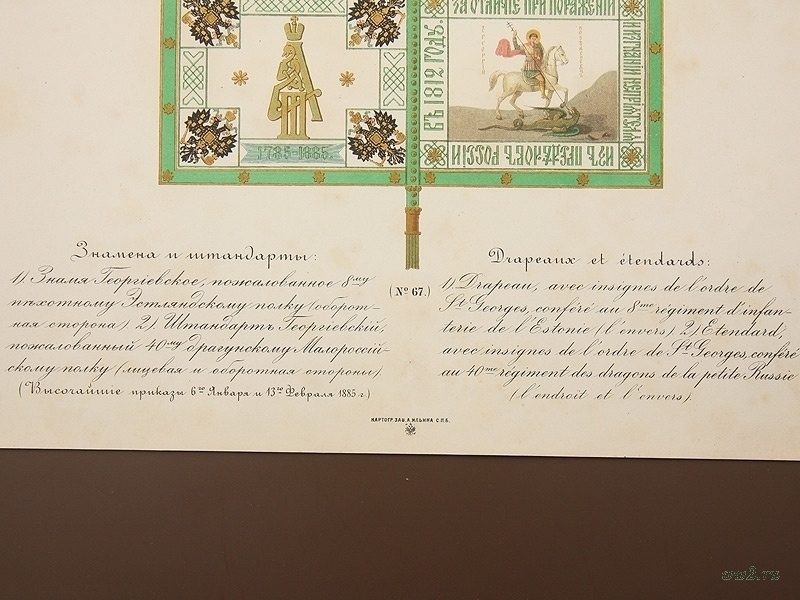 ЗА ОТЛИЧІЕ ПРИ ПОРАЖЕНІИ
И ИЗГНАНІИ НЕПРІЯТЕЛЯ
ИЗЪ ПРЕДѢЛОВЪ РОССІИ
ВЪ 1812 ГОДѢ.
1785-1885.
Знамена и штандарты:
1) Знамя Георгіевское, пожалованное 8му
пѣхотному Эстляндскому полку (оборот-
ная сторона) 2) Штандартъ Георгіевскій,
пожалованный 40му драгунскому Малороссій-
скому полку (лицевая и оборотная стороны)
(Высочайшіе приказы 6го Января и 13го Февраля 1885 г.)
(№ 67.)
Drapeaux et étendards:
1) Drapeau, avec insignes de l'ordre de
St Georges, conféré au 8me régiment d'infan-
terie de l'Estonie (l'envers) 2) Etendard,
avec insignes de l'ordre de St Georges, conféré
au 40me régiment des dragons de la petite Russie
(l'endroit et l'envers).
КАРТОГР. ЗАВ. А. ИЛЬИНА С.П.Б.
ow2.ru